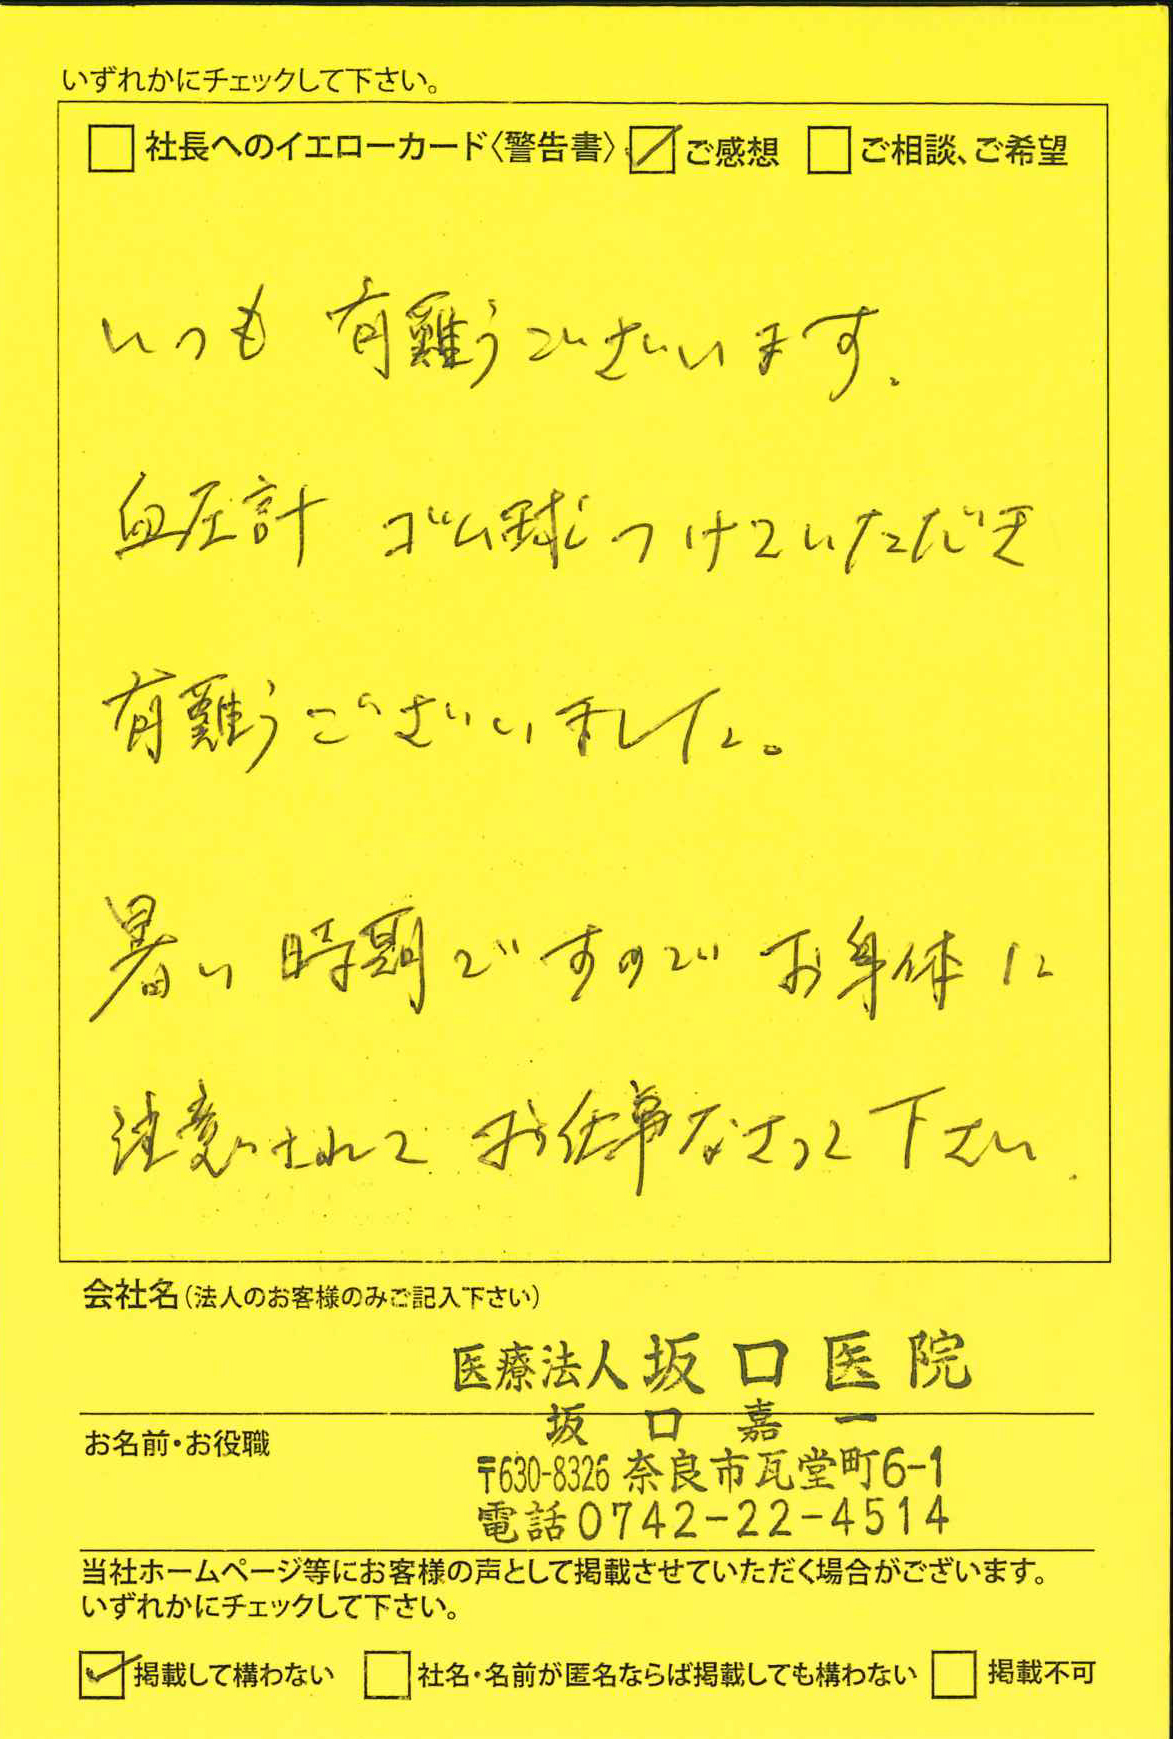 いずれかにチェックして下さい。
社長へのイエローカード〈警告書〉 ご感想 ご相談、ご希望
いつも 有難うございます.
血圧計 ゴム球 つけていただき
有難うございました。
暑い時期ですので お身体に
注意されて お仕事なさって下さい.
会社名(法人のお客様のみご記入下さい)
医療法人 坂口医院
坂口嘉一
お名前・お役職
〒630-8326 奈良市瓦堂町6-1
電話0742-22-4514
当社ホームページ等にお客様の声として掲載させていただく場合がございます。
いずれかにチェックして下さい。
掲載して構わない 社名・名前が匿名ならば掲載しても構わない 掲載不可